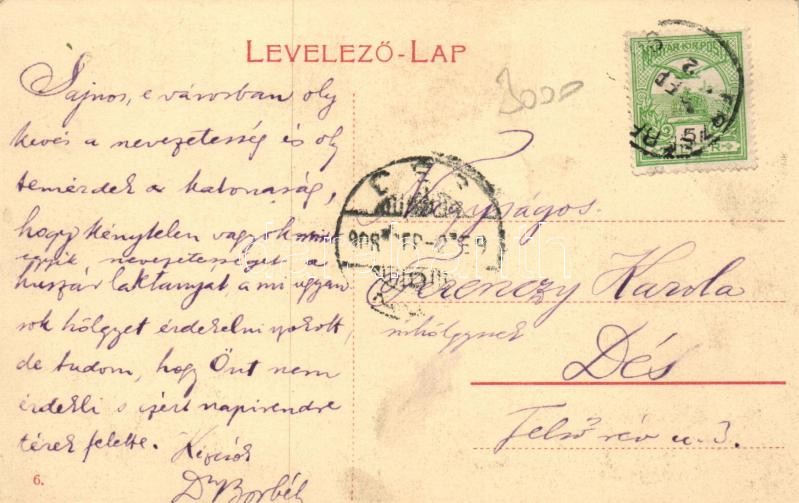 LEVELEZŐ-LAP
3000
Sajnos, e városban oly
kevés a nevezetesség és oly
temérdek a katonaság,
hogy kénytelen vagyok mint
egyik nevezetességet a
huszár laktanyát, a mi ugyan
sok hölgyet érdekelni szokott,
de tudom, hogy Önt nem
érdekli s ezért napirendre
térek felette.
Kezcsók
Dr Borbély
Nagyságos
Ferenczy Karola
urhölgynek
Dés
Felső rév u. 3.
908 SEP
6.